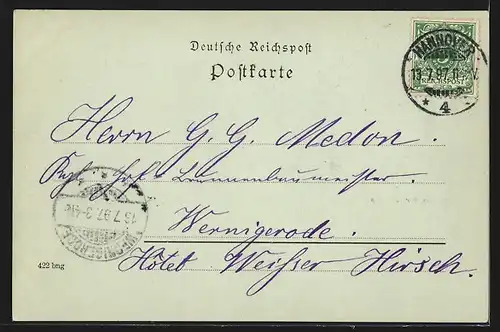 Deutsche Reichspost
Postkarte
HANNOVER
13.7.97.
* 4 *
REICHSPOST
Herrn G. G. Medon.
Wernigerode.
Hôtel Weisser Hirsch.
WERNIGERODE
13.7.97. 3-4
422 bmg